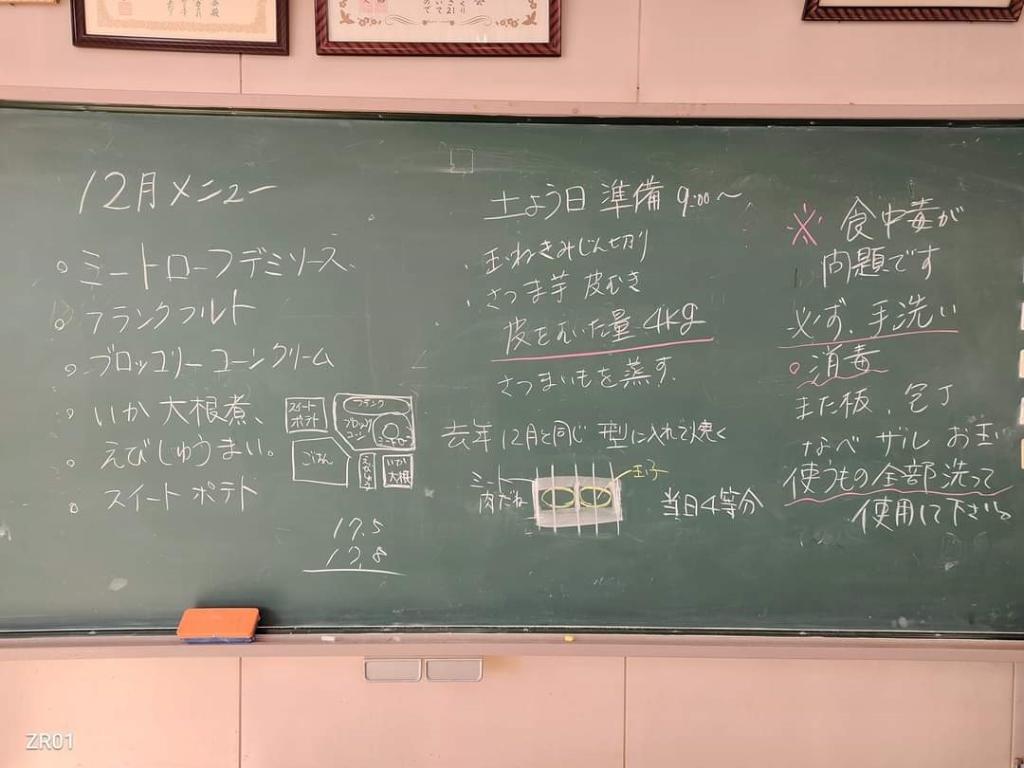 12月メニュー
○ミートローフデミソース
○フランクフルト
○ブロッコリーコーンクリーム
○いか大根煮、
○えびしゅうまい。
○スイートポテト
スイート
ポテト
フランク
ごはん
いか
大根
17.5
17.8
土よう日 準備 9:00〜
・玉ねぎみじん切り
・さつま芋 皮むき
皮をむいた量 4kg
さつまいもを蒸す.
去年12月と同じ 型に入れて焼く
ミート
肉だね
玉子
当日4等分
※ 食中毒が
問題です
必ず、手洗い
○消毒
また板、包丁
なべ ザル お玉
使うもの全部洗って
使用して下さい。
ZR01